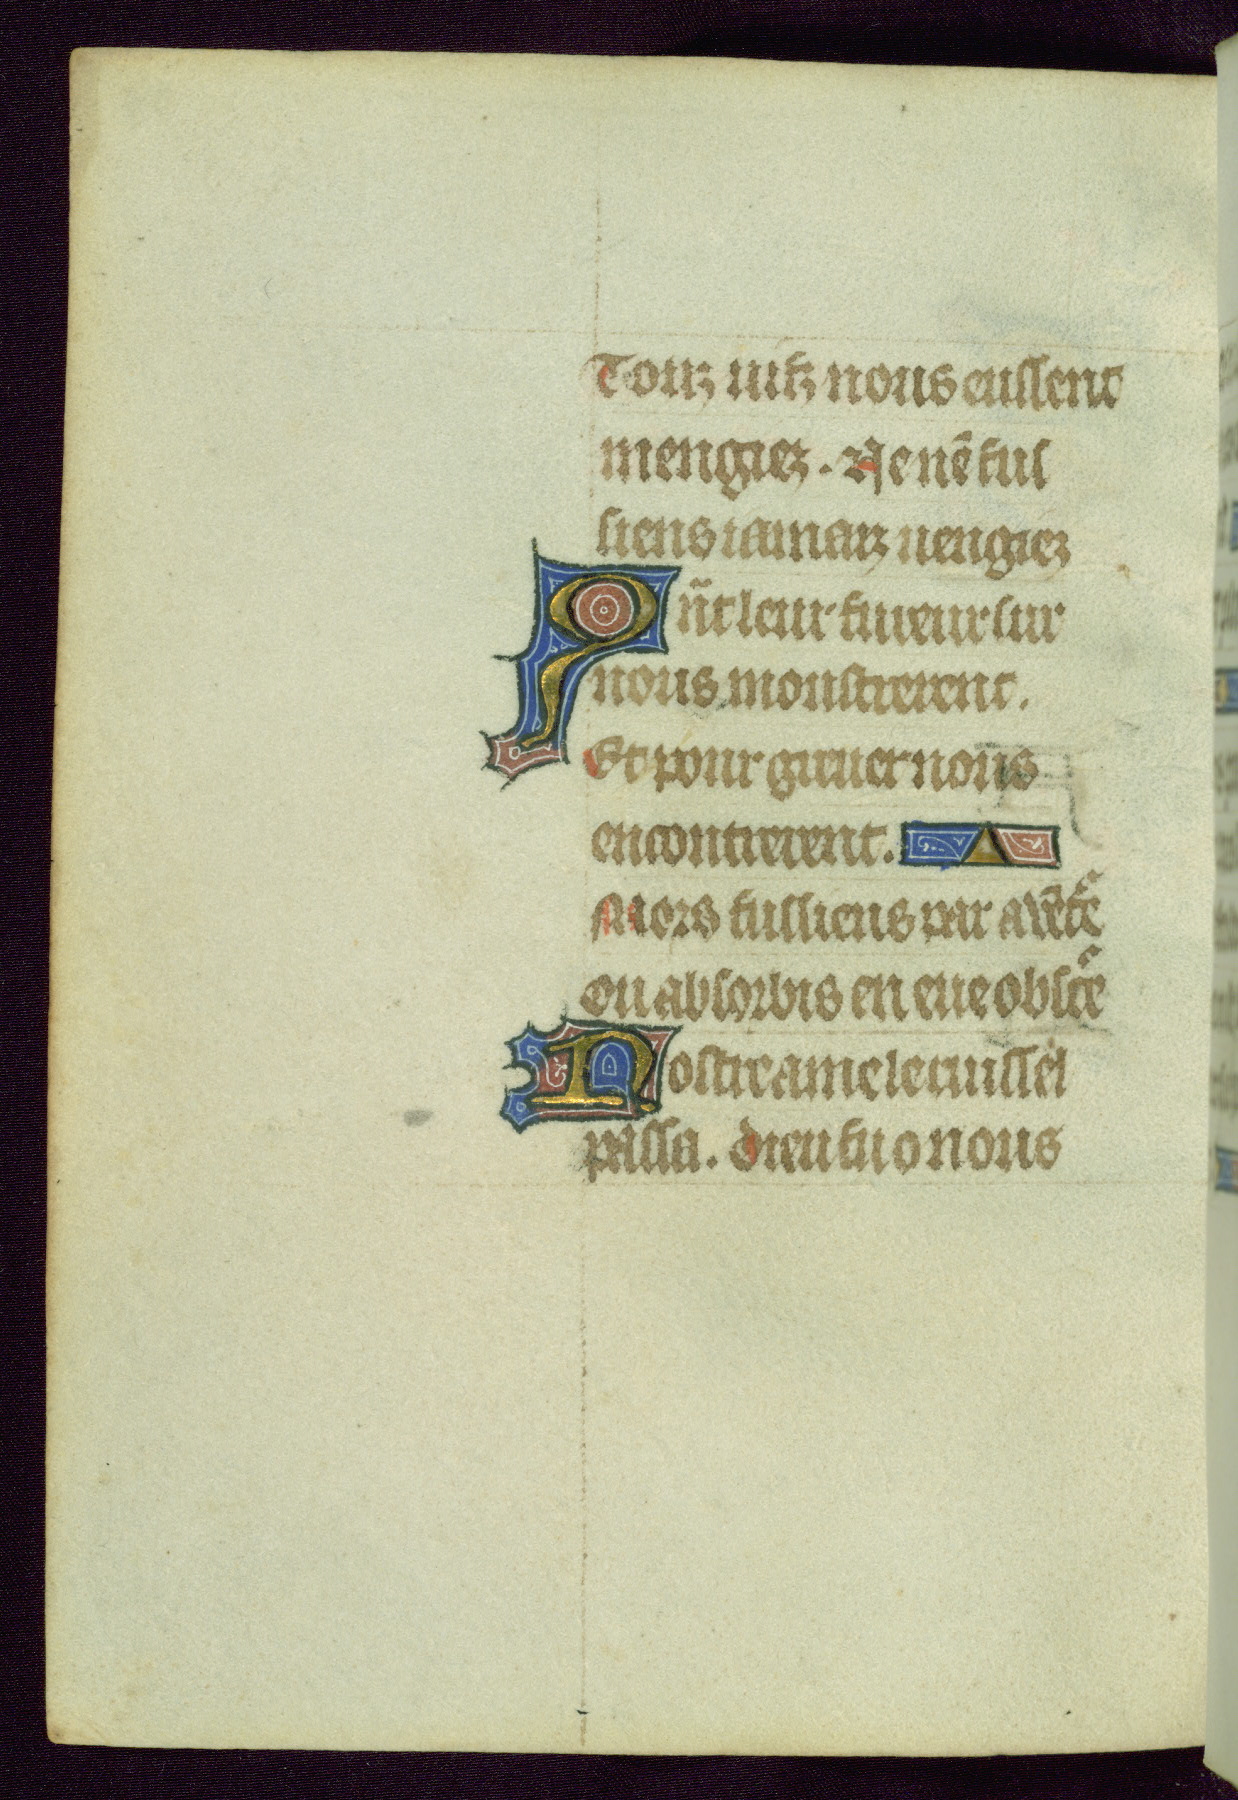 Touz uifz nous eussent
mengiez. Ne nē̄ fus
siens iamaiz uengiez
Qn̄t leur fureur sur
nous monstrerent.
Et pour greuer nous
encontrerent.
Mors fussiens par
ou absorbis en eue obscͬe
Nostre ame le ruissel
passa. dieu fu o nous